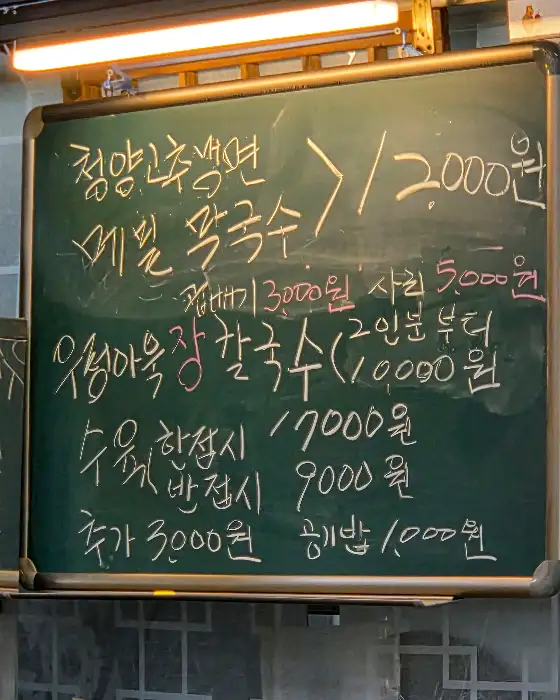 청양고추냉면 > 12000원
메밀 막국수
곱배기 3,000원 사리 5,000원
우렁아욱장칼국수 (2인분 부터
10,000원
수육( 한접시 17000원
반접시 9000원
추가 3,000원 공기밥 1,000원